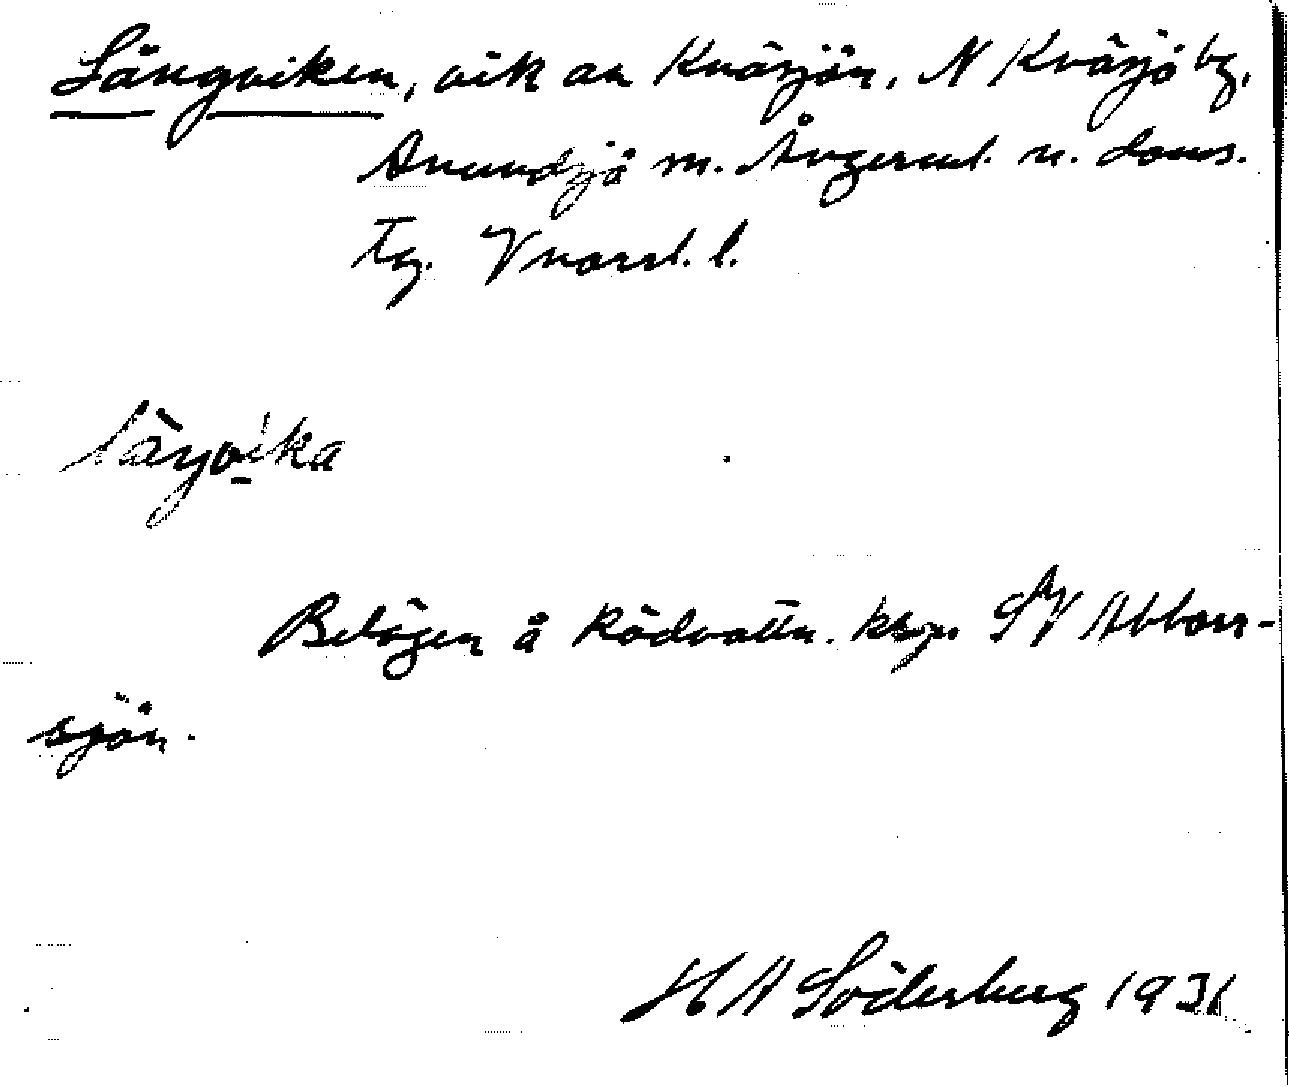 Långviken, vik av Kväsjön, N Kväsjö by,
Anundsjö sn. Ångerml. n. doms.
tg. Vnorrl. l.
låŋvika
Belägen å Rödvattn. kby. SV Abborr-
sjön.
H A Söderberg 1931